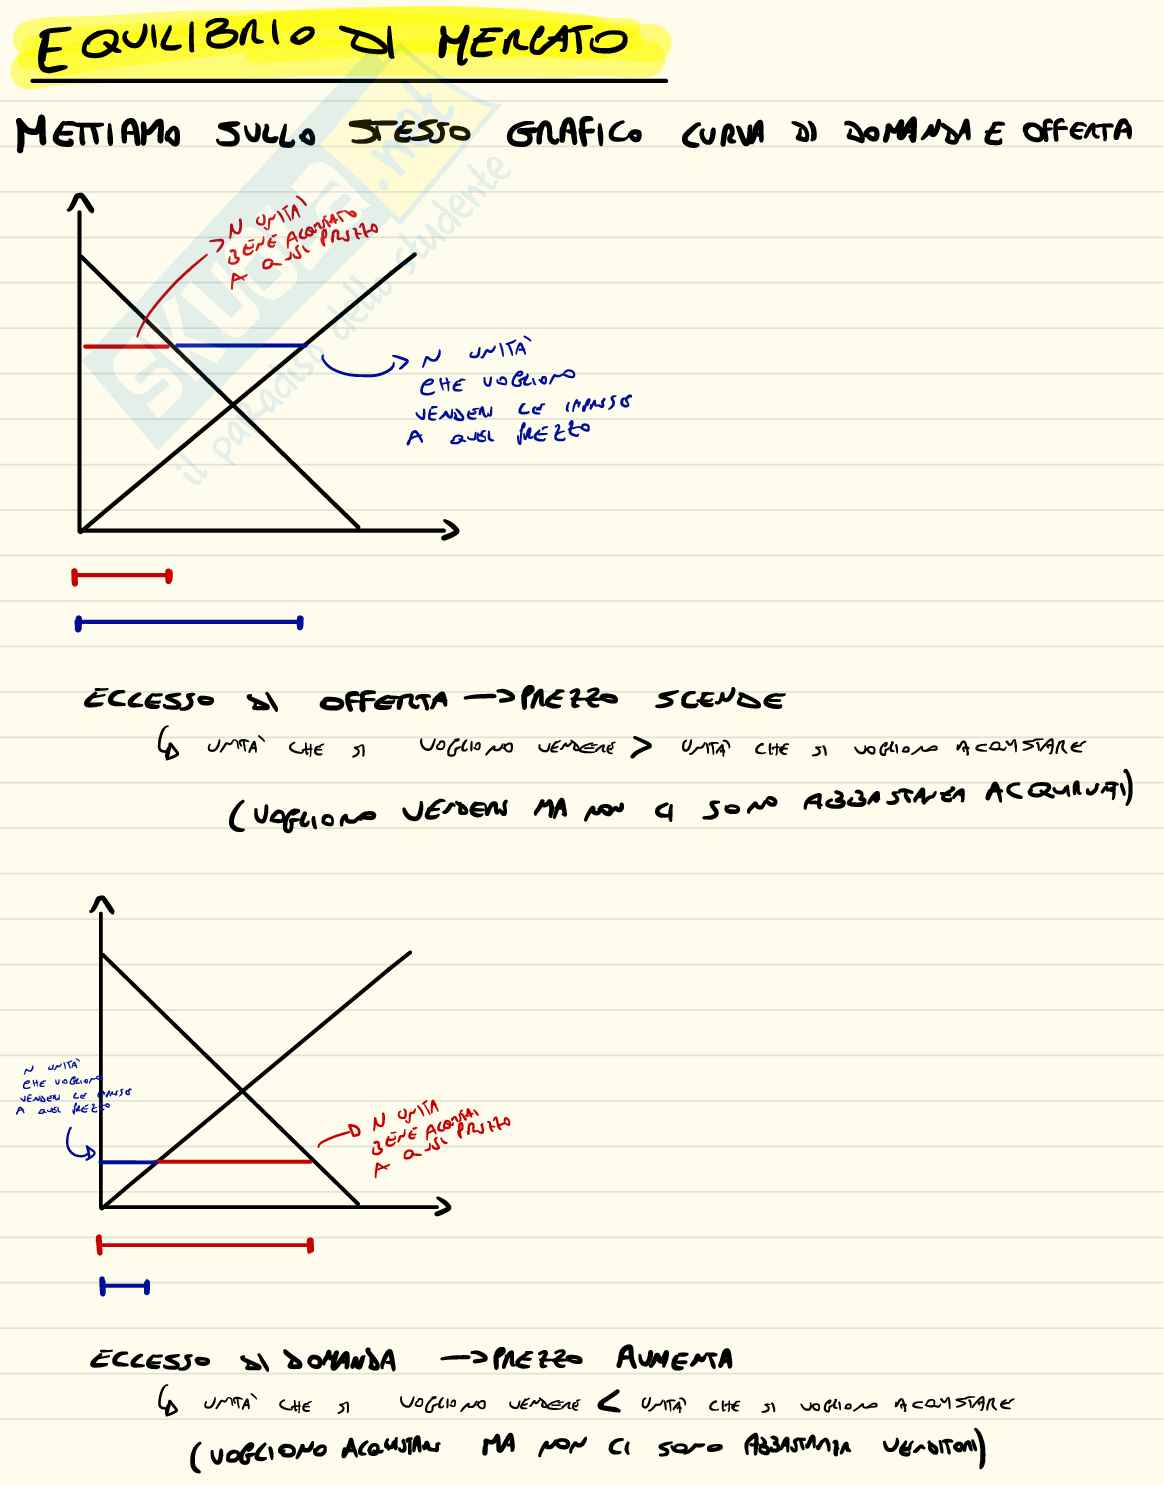 EQUILIBRIO DI MERCATO
METTIAMO SULLO STESSO GRAFICO CURVA DI DOMANDA E OFFERTA
SKUOLA.net
il paradiso dello studente
N UNITÀ
BENE ACQUISTATO
A QUEL PREZZO
N UNITÀ
CHE VOGLIONO
VENDERE LE IMPRESE
A QUEL PREZZO
ECCESSO DI OFFERTA → PREZZO SCENDE
↳ UNITÀ CHE SI VOGLIONO VENDERE > UNITÀ CHE SI VOGLIONO ACQUISTARE
(VOGLIONO VENDERE MA NON CI SONO ABBASTANZA ACQUIRENTI)
N UNITÀ
CHE VOGLIONO
VENDERE LE IMPRESE
A QUEL PREZZO
N UNITÀ
BENE ACQUISTATI
A QUEL PREZZO
ECCESSO DI DOMANDA → PREZZO AUMENTA
↳ UNITÀ CHE SI VOGLIONO VENDERE < UNITÀ CHE SI VOGLIONO ACQUISTARE
(VOGLIONO ACQUISTARE MA NON CI SONO ABBASTANZA VENDITORI)